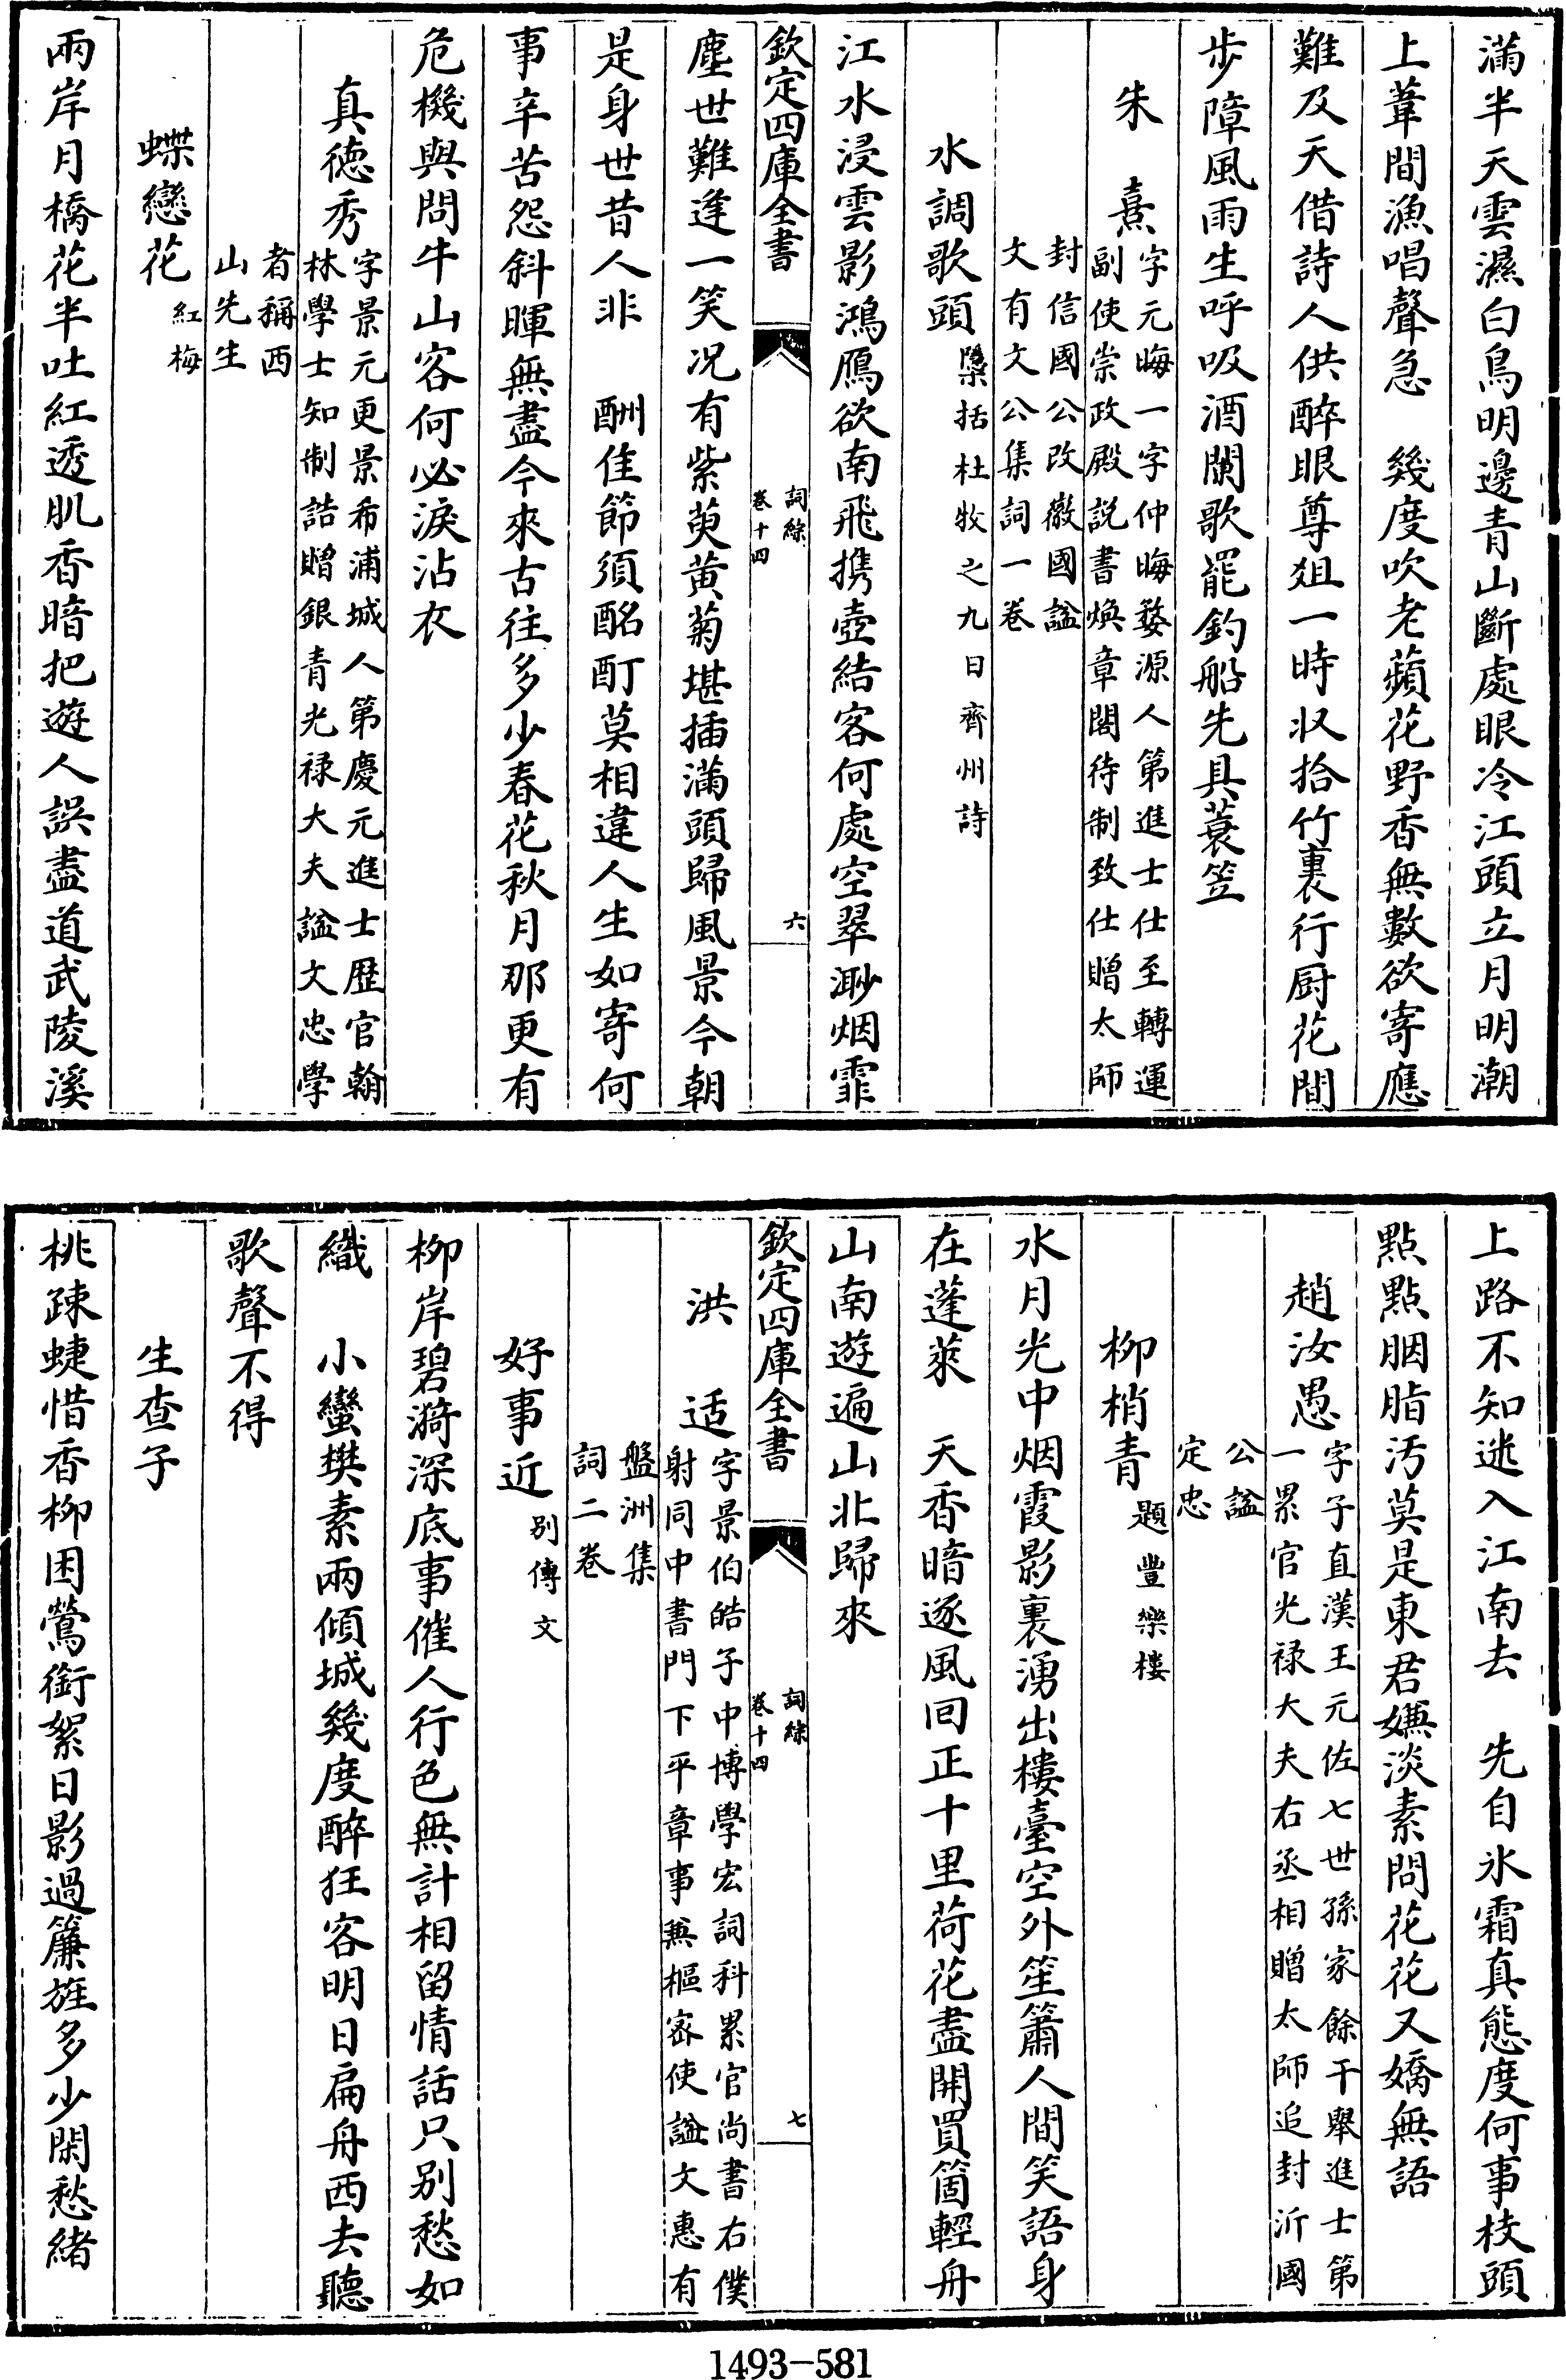 滿半天雲濕白鳥明邊青山斷處眼冷江頭立月明潮
上葦間漁唱聲急　幾度吹老蘋花野香無數欲寄應
難及天借詩人供醉眼尊俎一時収拾竹裏行厨花間
步障風雨生呼吸酒闌歌罷釣船先具蓑笠
朱　熹字元晦一字仲晦婺源人第進士仕至轉運
副使崇政殿説書煥章閣待制致仕贈太師
封信國公改徽國諡
文有文公集詞一卷
水調歌頭檃括杜牧之九日齊州詩
江水浸雲影鴻鴈欲南飛携壺結客何處空翠渺烟霏
欽定四庫全書
詞綜
卷十四
六
塵世難逢一笑况有紫萸黄菊堪插滿頭歸風景今朝
是身世昔人非　酬佳節須酩酊莫相違人生如寄何
事辛苦怨斜暉無盡今來古往多少春花秋月那更有
危機與問牛山客何必淚沾衣
真徳秀字景元更景希浦城人第慶元進士歴官翰
林學士知制誥贈銀青光禄大夫諡文忠學
者稱西
山先生
蝶戀花紅梅
兩岸月橋花半吐紅透肌香暗把遊人誤盡道武陵溪
上路不知迷入江南去　先自氷霜真態度何事枝頭
點點胭脂汚莫是東君嫌淡素問花花又嬌無語
趙汝愚字子直漢王元佐七世孫家餘干舉進士第
一累官光禄大夫右丞相贈太師追封沂國
公諡
定忠
柳梢青題豐樂樓
水月光中烟霞影裏湧出樓臺空外笙簫人間笑語身
在蓬萊　天香暗逐風回正十里荷花盡開買箇輕舟
山南遊遍山北歸來
欽定四庫全書
詞綜
卷十四
七
洪　适字景伯皓子中博學宏詞科累官尚書右僕
射同中書門下平章事兼樞宻使諡文惠有
盤洲集
詞二卷
好事近别傅文
柳岸碧漪深底事催人行色無計相留情話只别愁如
織　小蠻樊素兩傾城幾度醉狂客明日扁舟西去聽
歌聲不得
生查子
桃疎蜨惜香柳困鶯銜絮日影過簾旌多少閑愁緒
1493-581